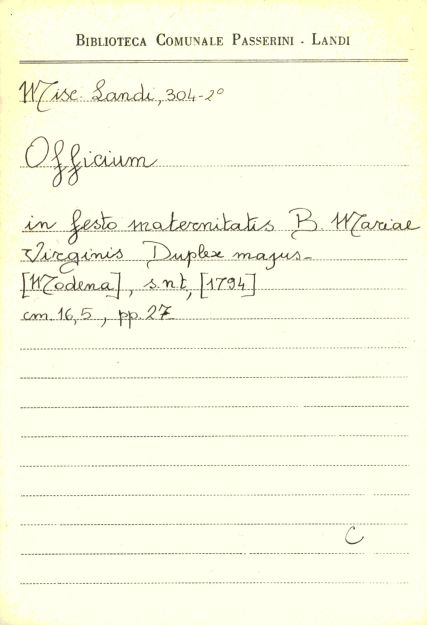 BIBLIOTECA COMUNALE PASSERINI - LANDI
Misc. Landi, 304-2º
Officium
in festo maternitatis B. Mariae
Virginis Duplex majus-
[Modena], s.n.t, [1794]
cm. 16,5, pp. 27
C